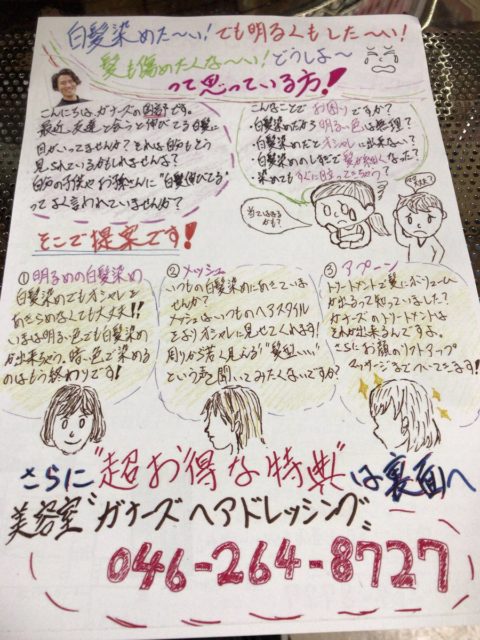 白髪染めた〜い!でも明るくもした〜い!
髪も傷めたくな〜い!どうしよ〜
って思っている方!
こんにちは、ガナーズの です。
最近、友達と会うと伸びてる白髪に
目がいってませんか?それは自分もそう
見られているかもしれませんよ?
自分の子供やお孫さんに"白髪伸びてる"
ってよく言われていませんか?
こんなことでお困りですか?
・白髪染めだから明るい色は無理?
・白髪染めだとオシャレに出来ない?
・白髪染めのしすぎで髪が細くなった?
・染めてもすぐに目立ってきちゃう?
当てはまるかも?
そこで提案です!
①明るめの白髪染め
白髪染めでもオシャレを
あきらめなくても大丈夫!!
いまは明るい色でも白髪染め
が出来ちゃう、暗い色で染める
のはもう終わりです!
②メッシュ
いつもの白髪染めにあきていま
せんか?
メッシュはいつものヘアスタイル
をよりオシャレに見せてくれます!
周りから若く見える"髪型いい"
という声聞いてみたくないですか?
③アプーン
トリートメントで髪にボリューム
が出るって知っていました?
ガナーズのトリートメントは
それが出来るんですよ。
さらにお顔のリフトアップ
マッサージまでついてきます!
さらに"超お得な特典"は裏面へ
美容室"ガナーズヘアドレッシング"
046-264-8727